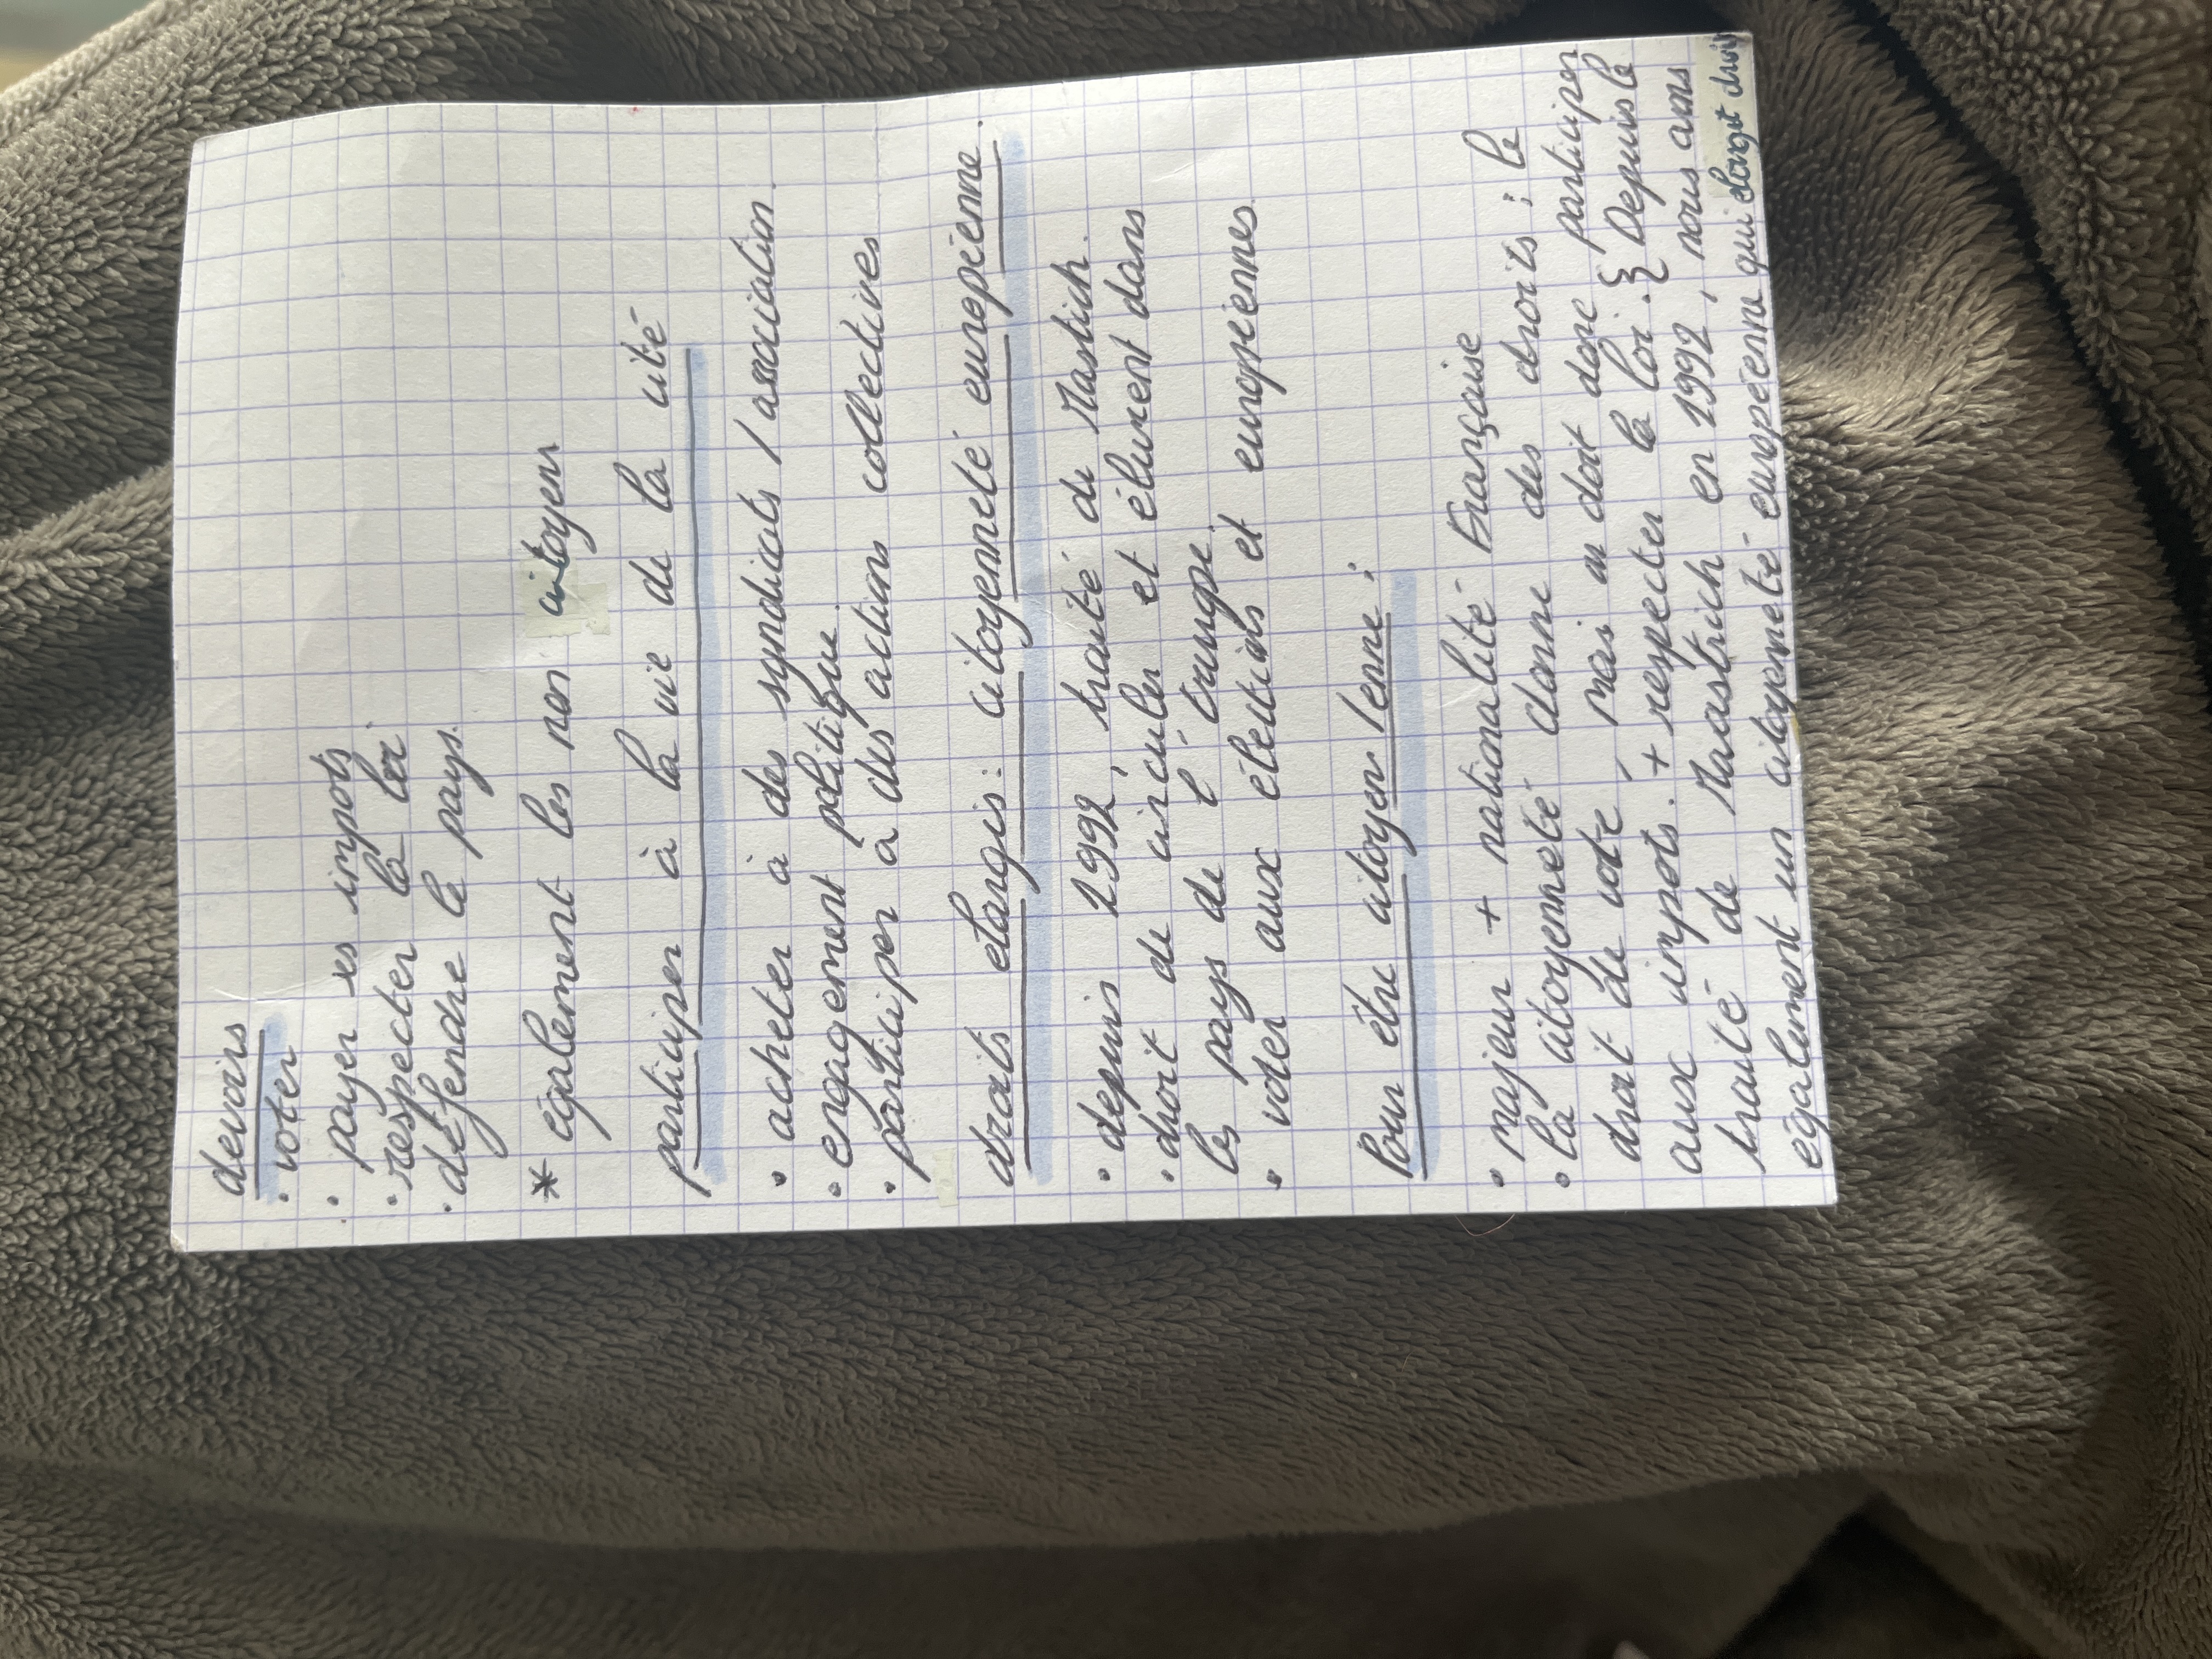 devoirs
· voter
· payer ses impots
· respecter la loi
· défendre le pays.
* également les non citoyens
participer à la vie de la cité
· acheter à des syndicats / association.
· engagement politique
· participer à des actions collectives
droits élargis : citoyenneté européenne.
· depuis 1992, traité de Mastich.
· droit de circuler et élurent dans
les pays de l'europe.
· voter aux élections et européennes
Pour être citoyen/enne :
· majeur + nationalité Française
· la citoyenneté donne des droits : le
droit de vote, mais on doit donc participer
aux impots. + respecter la loi. } Depuis le
traité de Maastrich en 1992, nous avons
également un citoyenneté européenne qui élargit droits